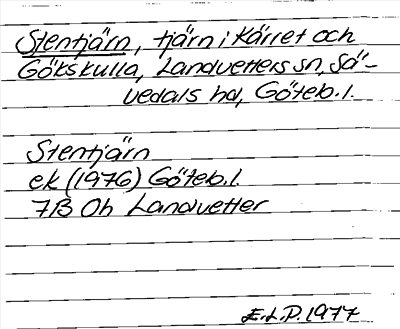 Stentjärn, tjärn i Kärret och
Gökskulla, Landvetters sn, Sä-
vedals hd, Göteb. l.
Stentjärn
ek (1976) Göteb. l.
7B Oh Landvetter
E.L.P. 1977